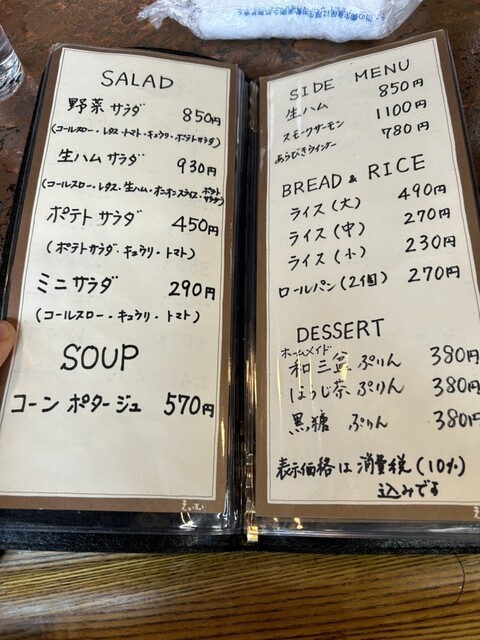 SALAD
野菜サラダ 850円
(コールスロー・レタス・トマト・キュウリ・ポテトサラダ)
生ハムサラダ 930円
(コールスロー・レタス・生ハム・オニオンスライス・ポテトサラダ)
ポテトサラダ 450円
(ポテトサラダ・キュウリ・トマト)
ミニサラダ 290円
(コールスロー・キュウリ・トマト)
SOUP
コーンポタージュ 570円
SIDE MENU
生ハム 850円
スモークサーモン 1100円
あらびきウインナー 780円
BREAD & RICE
ライス(大) 490円
ライス(中) 270円
ライス(小) 230円
ロールパン(2個) 270円
DESSERT
ホームメイド
和三盆 ぷりん 380円
ほうじ茶ぷりん 380円
黒糖 ぷりん 380円
表示価格は消費税(10%)
込みです